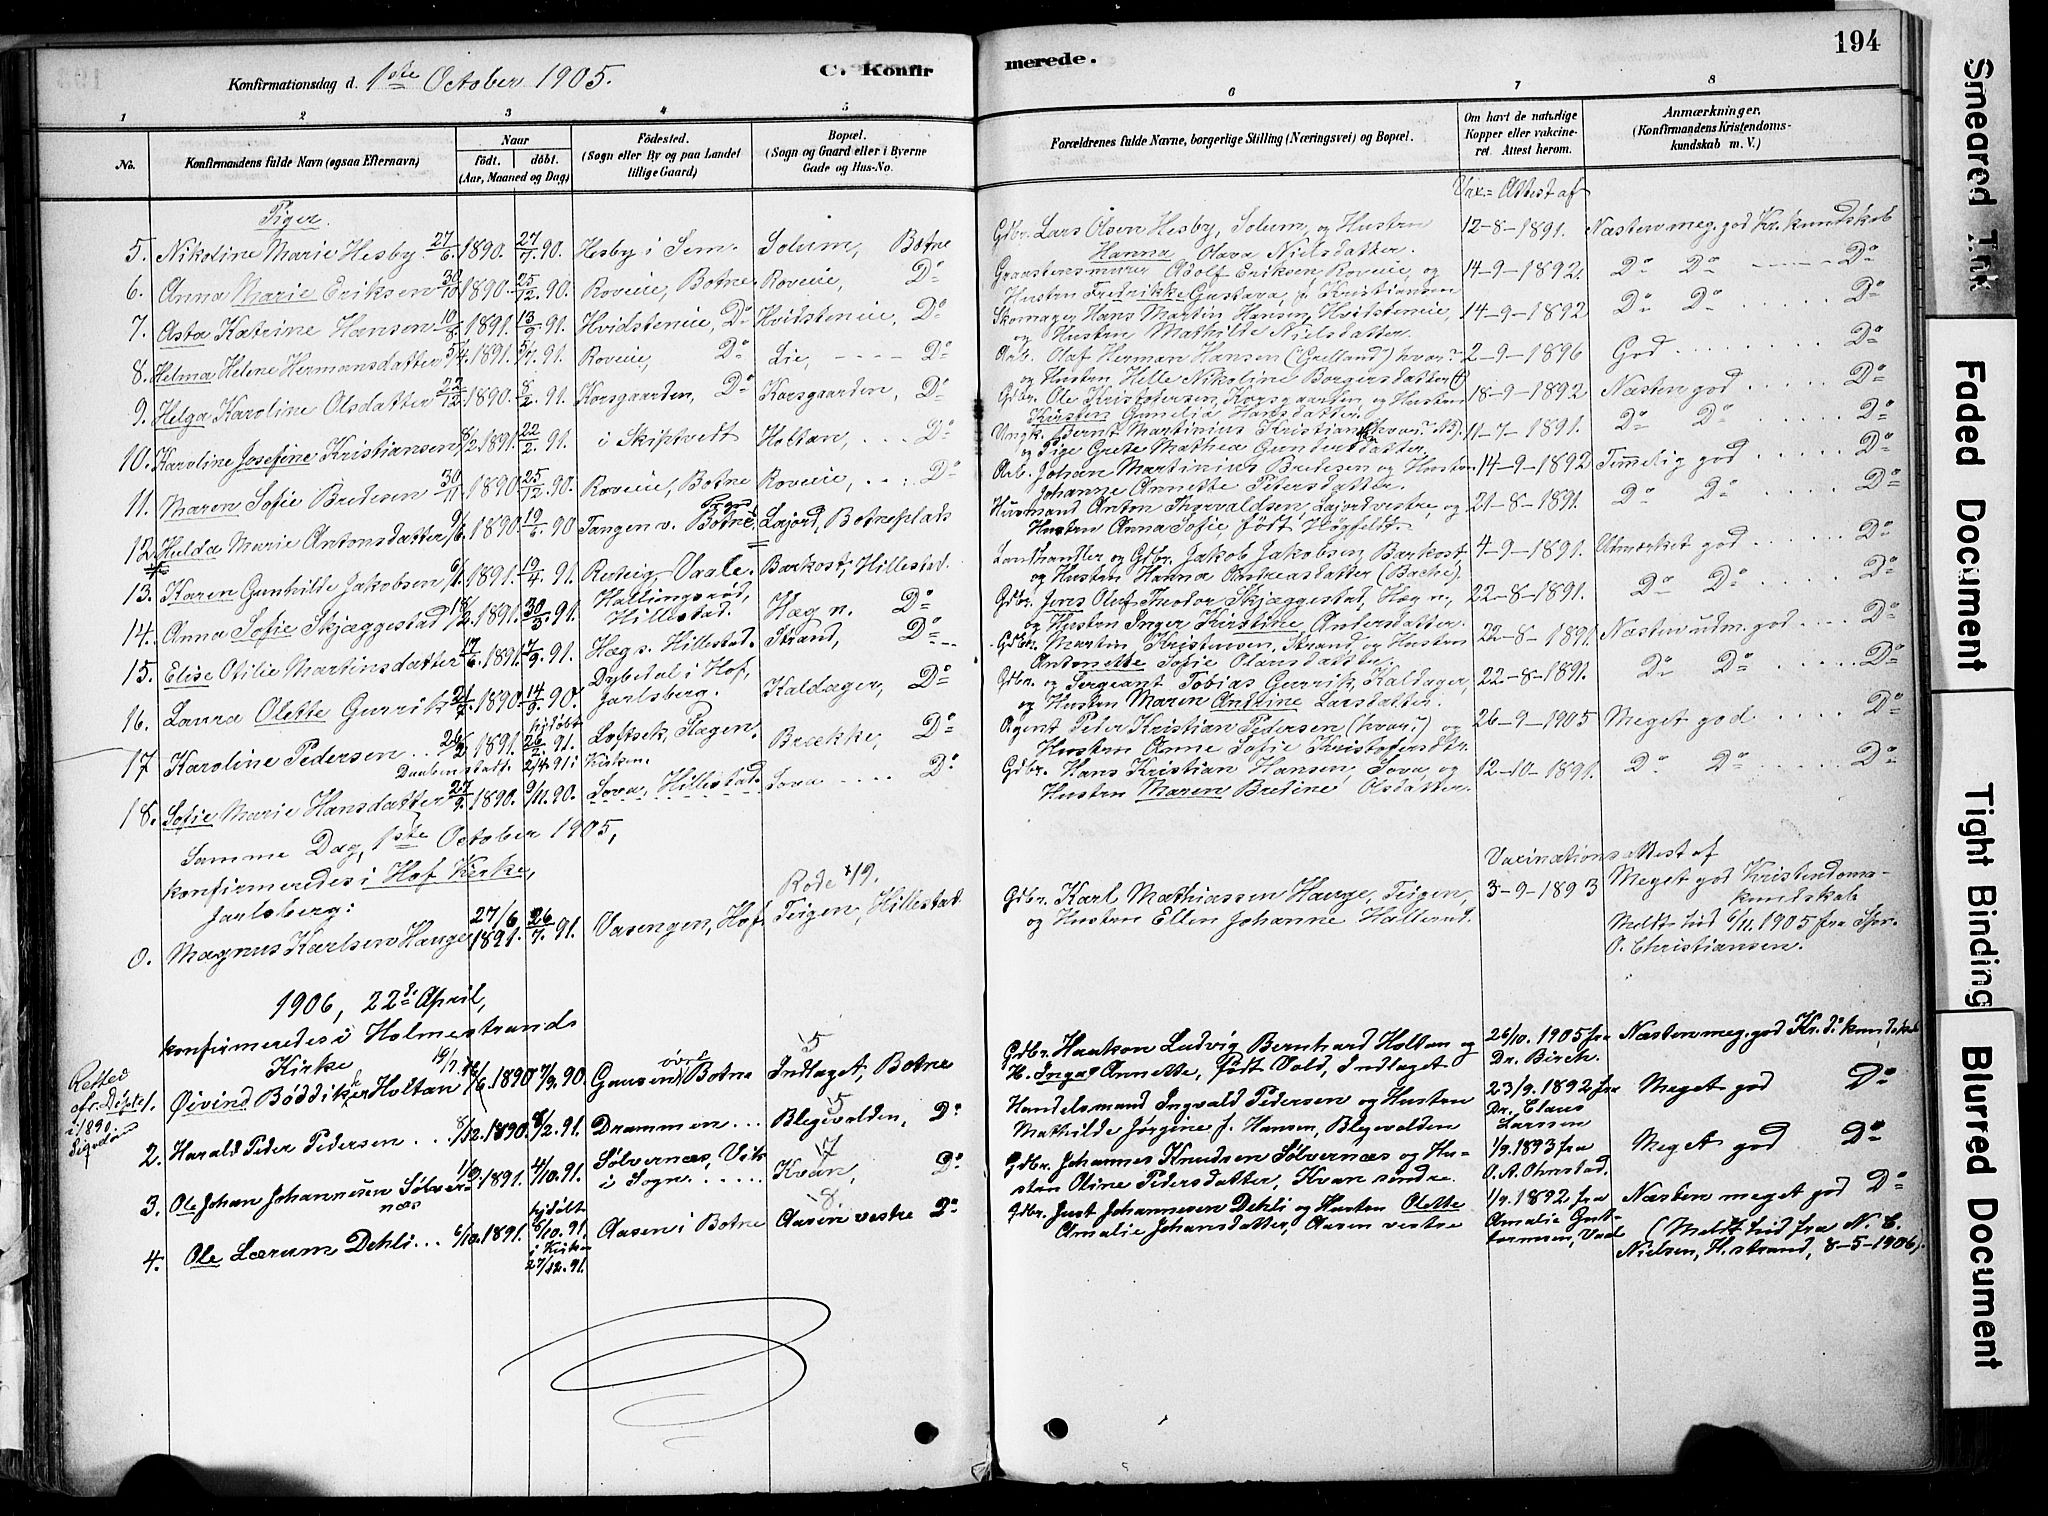 194
Konfirmationsdag d. 1ste October 1905.
C. Konfirmerede.
1 2 3 4 5 6 7 8
No. Konfirmandens fulde Navn (ogsaa Efternavn)
Naar født. døbt. (Aar, Maaned og Dag)
Fødested. (Sogn eller By og paa Landet tillige Gaard)
Bopæl. (Sogn og Gaard eller i Byerne Gade og Hus-No.
Forældrenes fulde Navne, borgerlige Stilling (Næringsvei) og Bopæl.
Om havt de naturlige Kopper eller vakcineret. Attest herom.
Anmærkninger. (Konfirmandens Kristendomskundskab m. V.)
Vax.=Attest af
Piger.
5. Nikoline Marie Hesby 27/6 1890. 27/7. 90. Hesby i Sem. Solum, Botne
Gdbr. Lars Olsen Hesby, Solum, og Hustru Hanna Olava Nielsdatter. 12-8-1891. Næsten meg. god Kr. kundskab
6. Anna Marie Eriksen 30/10 1890. 25/12. 90. Roveie, Botne Roveie, Do
Graastensmurer Adolf Eriksen Roveie, og Hustru Fredrikke Gustava, f. Kristiansen 14-9-1892. Do Do Do
7. Asta Katrine Hansen 1891. 91. Hvidsteneie, Do Hvidsteneie, Do
Skomager Hans Martin Hansen, Hvidsteneie, og Hustru Mathilde Nielsdatter. 14-9-1892 Do Do Do
8. Helma Helene Hermansdatter 5/4 1891. 91. Roveie, Do Lie, Do
Arb. Olaf Herman Hansen (Grelland) hvor? og Hustru Helle Nikoline Borgersdatter (†) 2-9-1896 God Do
9. Helga Karoline Olsdatter 22/12 1890. 8/2. 91. Korsgaarden, Do Korsgaarden, Do
Gdbr. Ole Kristofersen, Korsgaarden, og Hustru Kirsten Gunelia Hansdatter. 18-9-1892 Næsten god Do
10. Karoline Josefine Kristiansen 8/2 1891. 22/2. 91. i Skiptvedt Holtan, Do
Ungk. Bernt Martinius Kristiansen (hvor? N.) og Pige Grete Mathea Gundersdatter. 11-7-1891. Do Do Do
11. Maren Sofie Bredesen 30/11 1890. 25/12. 90. Roveie, Botne Roveie, Do
Arb. Johan Martinius Bredesen og Hustru Johanne Annette Petersdatter. 14-9-1892 Temmelig god Do
12. Hulda Marie Antonsdatter 1890. 90 Tangen v. Botne Lajord, Botneplads
Husmand Anton Thorvaldsen, Lajordvestre, og Hustru Anna Sofie, født Høgfeldt. 21-8-1891. Do Do Do
13. Karen Gunhilde Jakobsen 1891. 19/4. 91. Vaale. Barkost, Hillestad.
Landhandler og Gdbr. Jakob Jakobsen, Barkost, og Hustru Hanna Andreasdatter (Bache). 4-9-1891. Udmærket god Do
14. Anna Sofie Skjæggestad 1891. 30/3. 91. Hallingsrød, Hillestad. Hæg n. Do
Gdbr. Jens Olaf Theodor Skjæggestad, Hæg n., og Hustru Inger Kirstine Andersdatter. 22-8-1891. Do Do Do
15. Elise Otilie Martinsdatter 17/6 1891. 91. Hæg s. Hillestad. Strand, Do
Gdbr. Martin Kristensen, Strand, og Hustru Antonette Sofie Olausdatter. 22-8-1891 Næsten udm. god Do
16. Laura Olette Gurrik 1890. 14/9. 90. Dybedal i Hof, Jarlsberg. Kaldager, Do
Gdbr. og Sergeant Tobias Gurrik, Kaldager, og Hustru Maren Andrine Larsdatter. 22-8-1891. Do Do Do
17 Karoline Pedersen 26/2 1891. hjdøbt 26/2. 91. 2/4. 91 i Kirken. Løfsek, Slagen. Brække, Do
Agent Peder Kristian Pedersen (hvor?) og Hustru Anne Sofie Kristofersdtr. 26-9-1905 Meget god Do
18. Sofie Marie Hansdatter 27/9 1890. 9/11. 90. Sova, Hillestad. Sova Do
Gdbr. Hans Kristian Hansen, Sova, og Hustru Maren Bredine Olsdatter. 12-10-1891. Do Do Do
Samme Dag, 1ste October 1905,
konfirmeredes i Hof Kirke,
Jarlsberg:
Vaxinationsattest af
0. Magnus Karlsen Hauge 27/6 1891. 26/7. 91. Vasengen, Hof. Rode 19. Teigen, Hillestad.
Gdbr. Karl Mathiassen Hauge, Teigen, og Hustru Ellen Johanne Hallerud. 3-9-1893 Meget god Kristendomskundskab
Meldt hid 6/11. 1905 fra Spr. O. Christiansen.
1906, 22de April,
konfirmeredes i Holmestrands
Kirke
Rettet efr. Døpte i 1890
1. Øivind Boddiker Holtan 1890 7/9. 90. Gausen øvre Botne 5 Indlaget, Botne
Gdbr. Haakon Ludvig Bernhard Holtan og H. Inga Annette, født Vold, Indlaget 26/10. 1905 fra Dr. Birch. Næsten meg. god Kr.d.kundskab
2. Harald Peder Pedersen 8/12. 1890. 8/2. 91. Drammen 5 Blegevolden, Do
Handelsmand Ingvald Pedersen og Hustru Mathilde Jørgine f. Hansen, Blegevolden 23/9. 1892 fra Dr. Claus Larsen Meget god Do
3. Ole Johan Johannesen Sølvernæs 1891. 4/10. 91. Sølvernæs, Vik i Sogn 7 Kvan, Do
Gdbr. Johannes Knudsen Sølvernæs og Hustru Oline Pedersdatter, Kvan søndre. 1/9. 1893 fra O. A. Ohnstad. Meget god Do
4. Ole Lærum Dehli 6/10. 1891. hjdøbt 8/10. 91. i Kirken 27/12. 91. Aasen i Botne 8. Aasen vestre Do
Gdbr. Just Johannesen Dehli og Hustru Olette Amalie Johansdatter, Aasen vestre 1/9. 1892 fra Amalie Guttormsen, Vaale Næsten meget god Do
(Meldt hid fra N. C. Nielsen, H.strand, 8-5-1906).
Smeared Ink
Faded Document
Tight Binding
Blurred Document